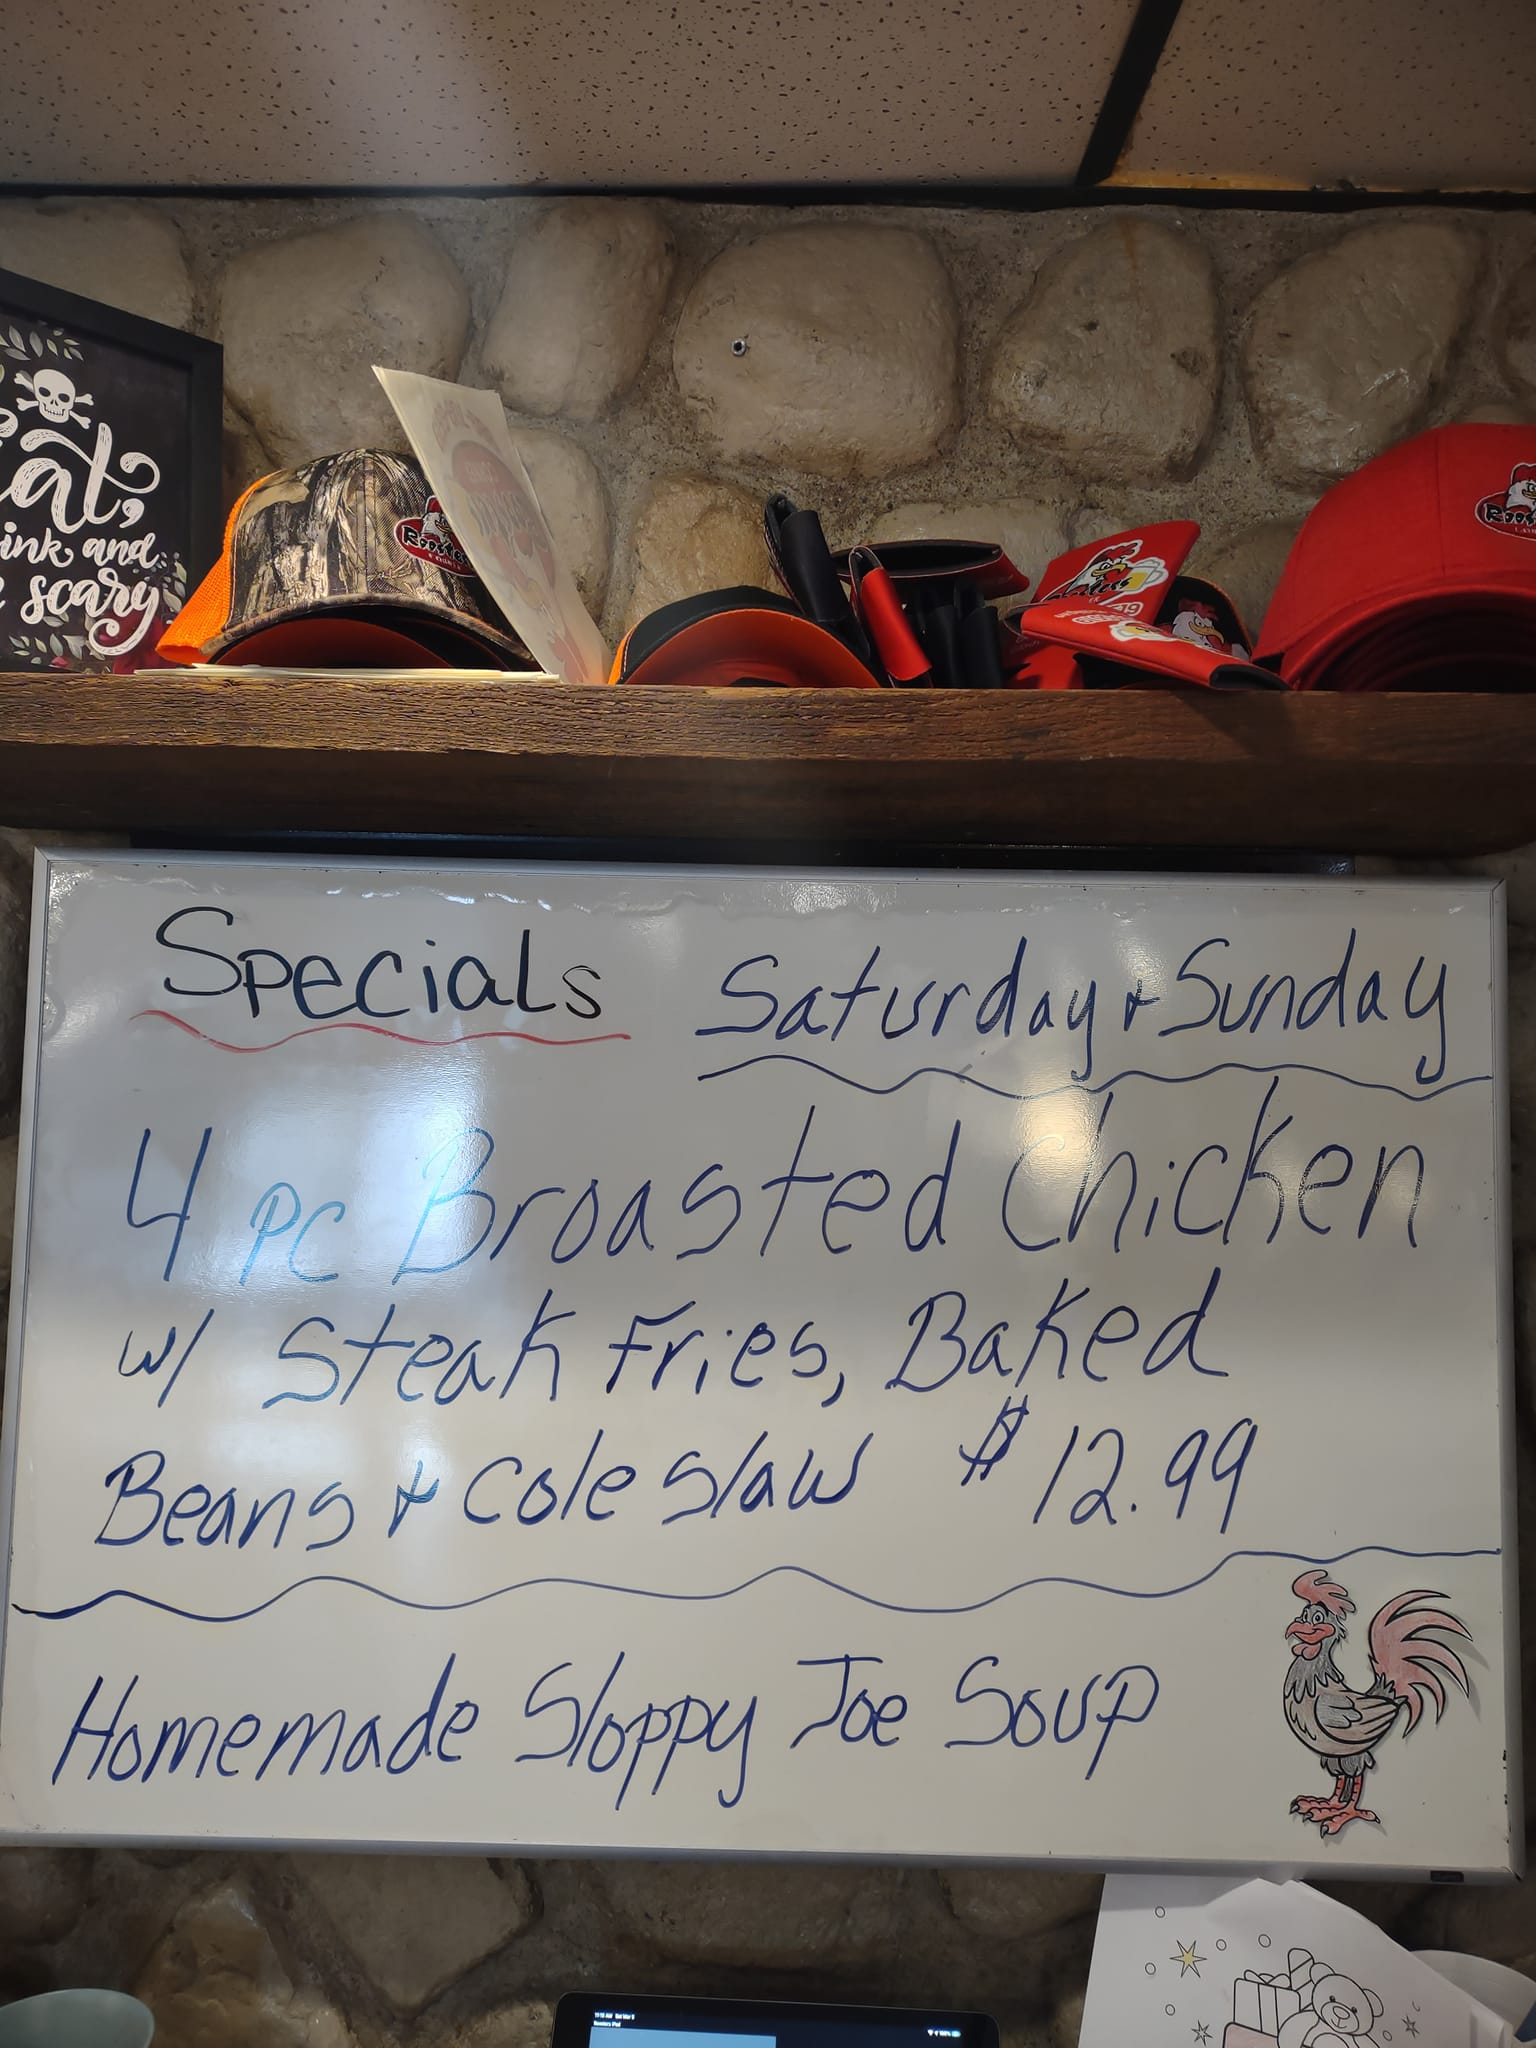 eat,
ink and
scary
Rooster
Rooste
Specials
Saturday & Sunday
4 PC Broasted Chicken
w/ Steak Fries, Baked
Beans & Coleslaw $12.99
Homemade Sloppy Joe Soup